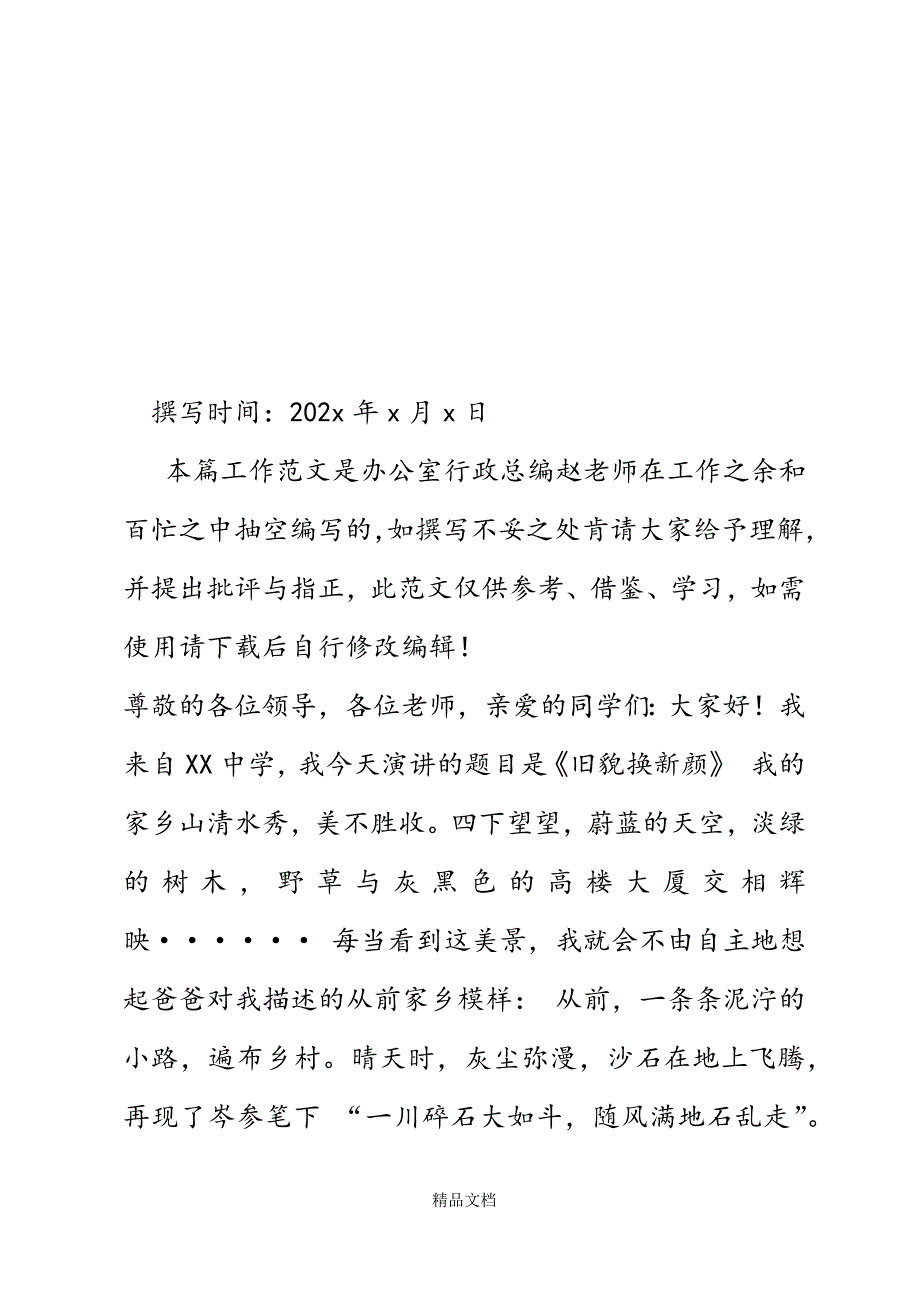 撰写时间：202x 年 x 月 x 日
本篇工作范文是办公室行政总编赵老师在工作之余和
百忙之中抽空编写的，如撰写不妥之处肯请大家给予理解，
并提出批评与指正，此范文仅供参考、借鉴、学习，如需
使用请下载后自行修改编辑！
尊敬的各位领导，各位老师，亲爱的同学们：大家好！我
来自 XX 中学，我今天演讲的题目是《旧貌换新颜》 我的
家乡山清水秀，美不胜收。四下望望，蔚蓝的天空，淡绿
的树木，野草与灰黑色的高楼大厦交相辉
映······ 每当看到这美景，我就会不由自主地想
起爸爸对我描述的从前家乡模样： 从前，一条条泥泞的
小路，遍布乡村。晴天时，灰尘弥漫，沙石在地上飞腾，
再现了岑参笔下 “一川碎石大如斗，随风满地石乱走”。
精品文档